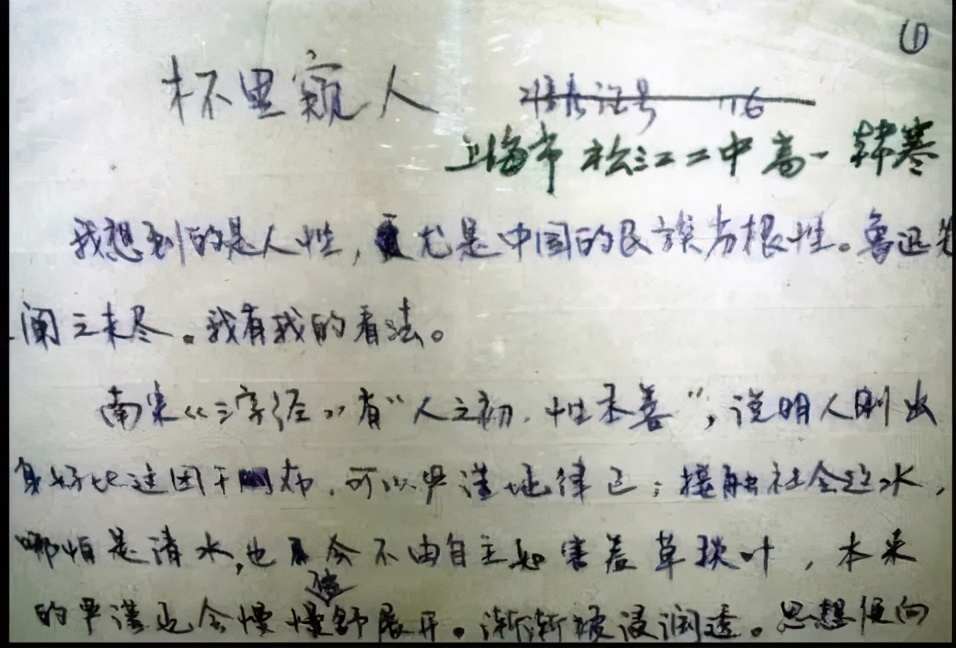 ①
杯里窥人 准考证号 116
上海市松江二中高一 韩寒
我想到的是人性，尤是中国的民族劣根性。鲁迅先
阐之未尽。我有我的看法。
南宋《三字经》有“人之初，性本善”，说明人刚出
身好比这团干布，可以严谨地律己；接触社会这水，
哪怕是清水，也会不由自主如害羞草掞叶，本来
的严谨也会慢慢地舒展开。渐渐被浸润透。思想便向